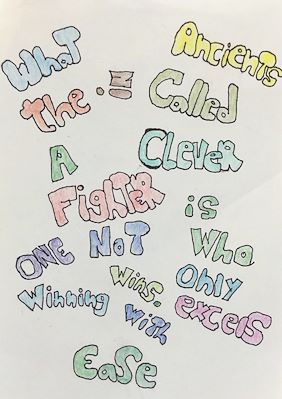 WhaT Ancients
the Called
A Clever
FighTER is
ONE NoT Who
Wins. Only
Winning With excels
Ease